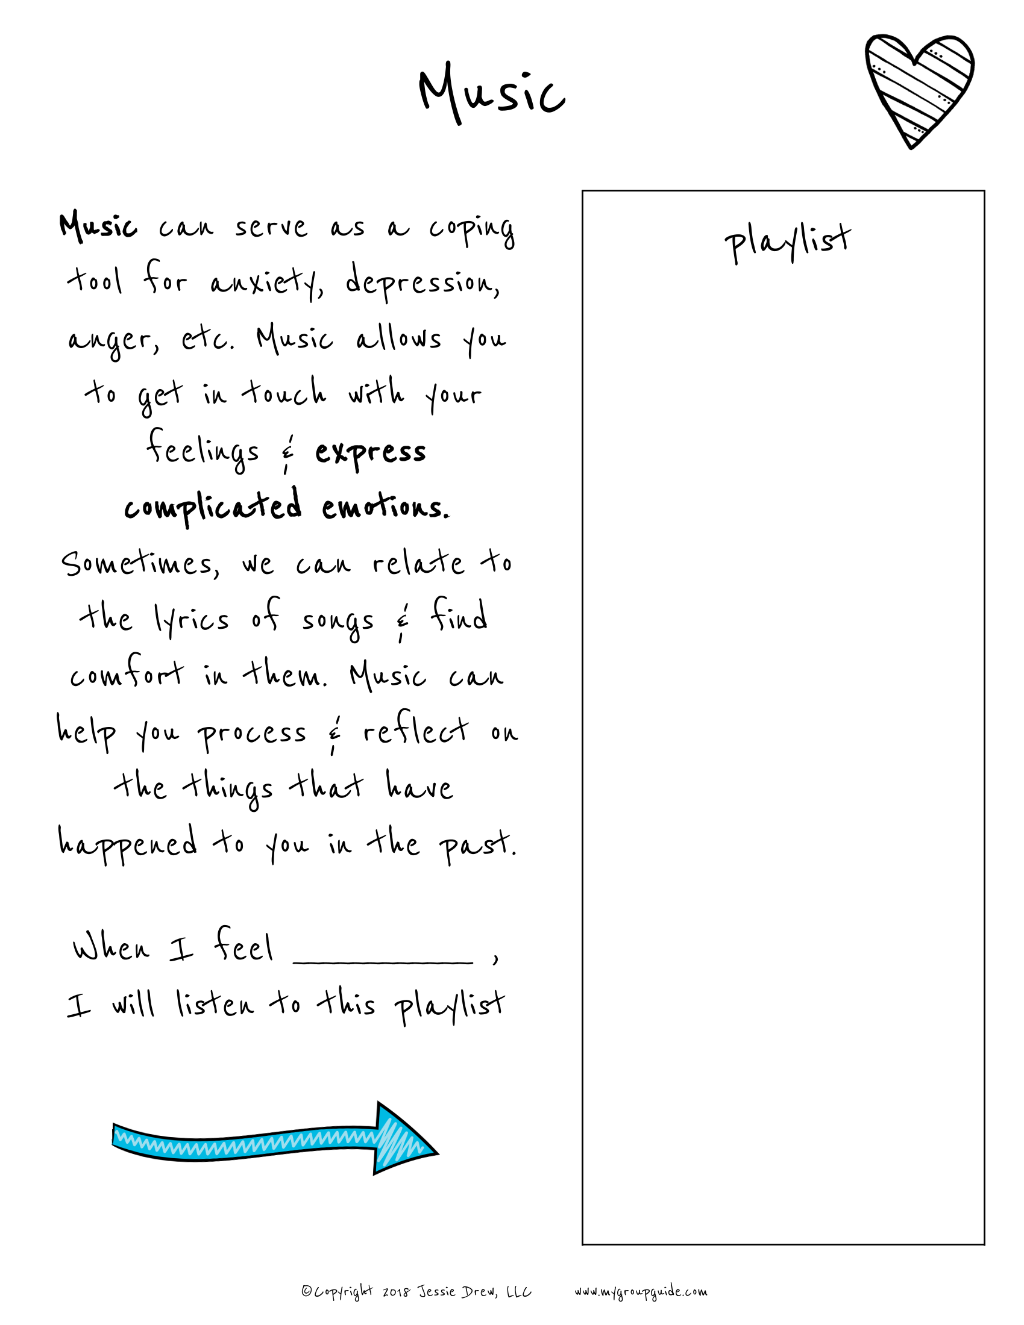 Music
Music can serve as a coping
tool for anxiety, depression,
anger, etc. Music allows you
to get in touch with your
feelings & express
complicated emotions.
Sometimes, we can relate to
the lyrics of songs & find
comfort in them. Music can
help you process & reflect on
the things that have
happened to you in the past.
When I feel __________ ,
I will listen to this playlist
playlist
©Copyright 2018 Jessie Drew, LLC www.mygroupguide.com